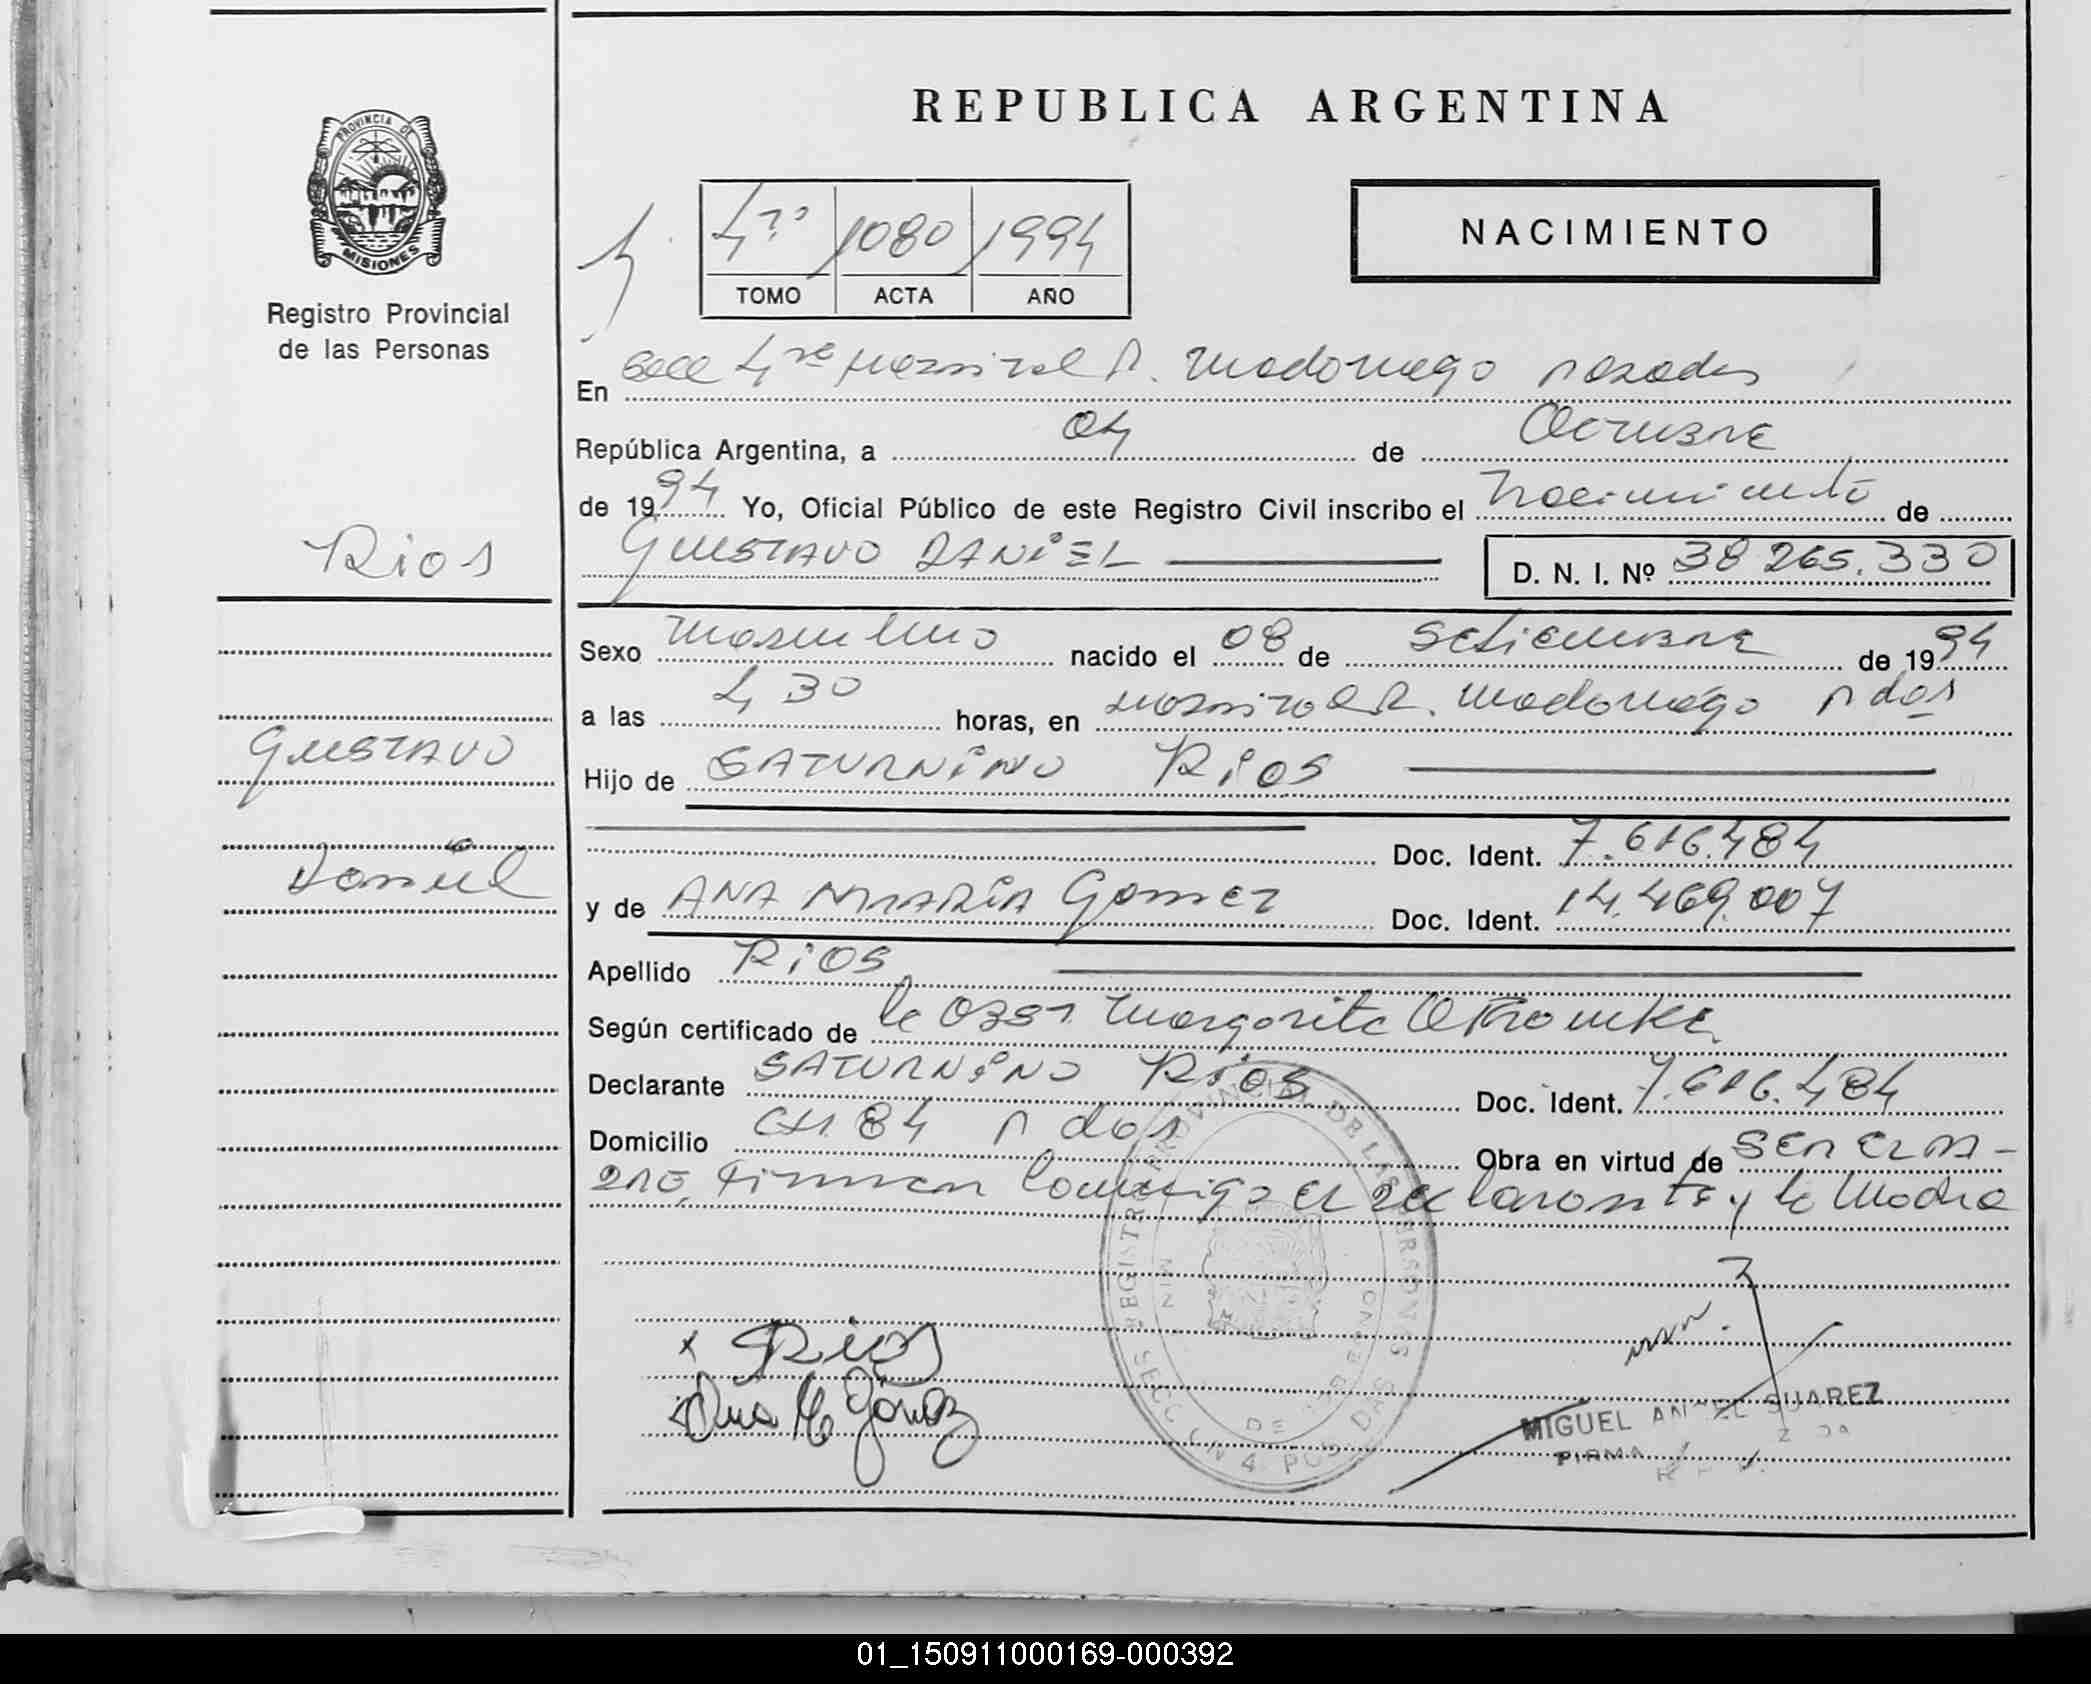 REPUBLICA ARGENTINA
PROVINCIA DE
MISIONES
Registro Provincial
de las Personas
4to 1080 1994
TOMO ACTA AÑO
NACIMIENTO
En Secc 4ta Hospital R. Madariaga Posadas
República Argentina, a 04 de Octubre
de 1994 Yo, Oficial Público de este Registro Civil inscribo el Nacimiento de
GUSTAVO DANIEL D. N. I. Nº 38 265.330
Rios
Sexo Masculino nacido el 08 de Setiembre de 1994
a las 4 30 horas, en Hospital R. Madariaga Pdas
Gustavo
Hijo de SATURNINO Rios
Doc. Ident. 7.616.484
Daniel
y de ANA MARIA Gomez Doc. Ident. 14.469.007
Apellido RIOS
Según certificado de la Obst. Margarita
Declarante SATURNINO Rios Doc. Ident. 7.616.484
Domicilio CH. 84 Pdas Obra en virtud de SER EL PA-
DRE, Firman conmigo el declarante y la Madre
REGISTRO PROVINCIAL DE LAS PERSONAS
MIN DE GOBIERNO
SECCION 4 POSADAS
Rios
Ana M Gomez
MIGUEL ANGEL SUAREZ
FIRMA
01_150911000169-000392